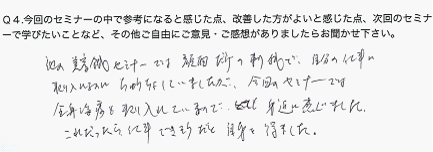 Q4.今回のセミナーの中で参考になると感じた点、改善した方がよいと感じた点、次回のセミナ
ーで学びたいことなど、その他ご自由にご意見・ご感想がありましたらお聞かせ下さい。
他の美容鍼セミナーでは顔面だけの刺鍼で、自分の仕事の
取り入れ していましたが、今回のセミナーでは
全身治療も取り入れているので、身近に感じました。
これだったら仕事できそうだと自身を得ました。